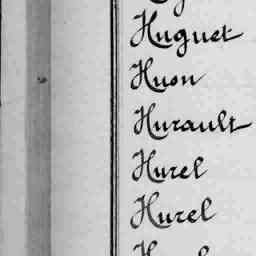 Huguet
Huon
Hurault
Hurel
Hurel